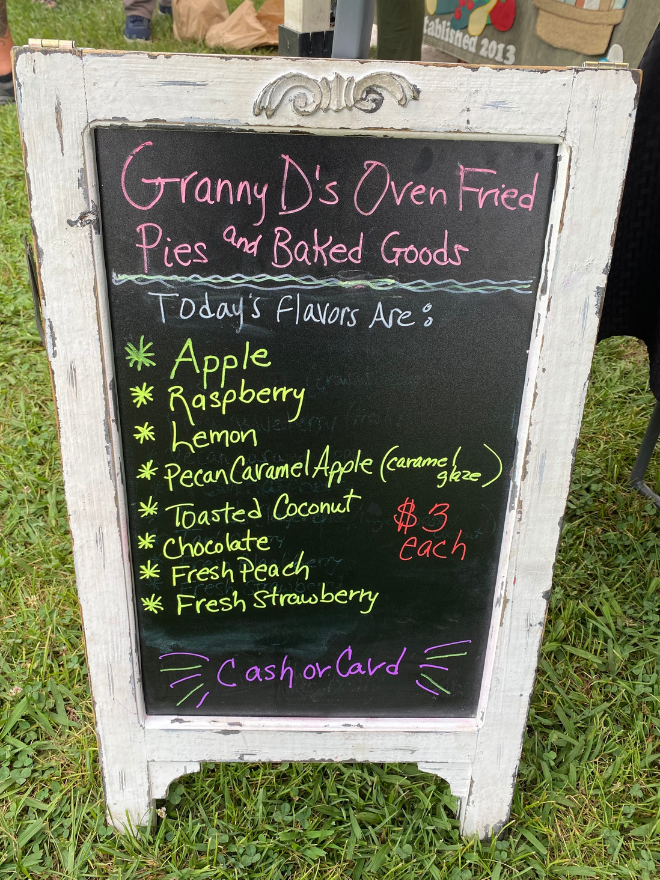 tablished 2013
Granny D's Oven Fried
Pies and Baked Goods
Today's Flavors Are:
* Apple
* Raspberry
* Lemon
* Pecan Caramel Apple (caramel glaze)
* Toasted Coconut
* Chocolate
* Fresh Peach
* Fresh Strawberry
$3
each
Cash or Card